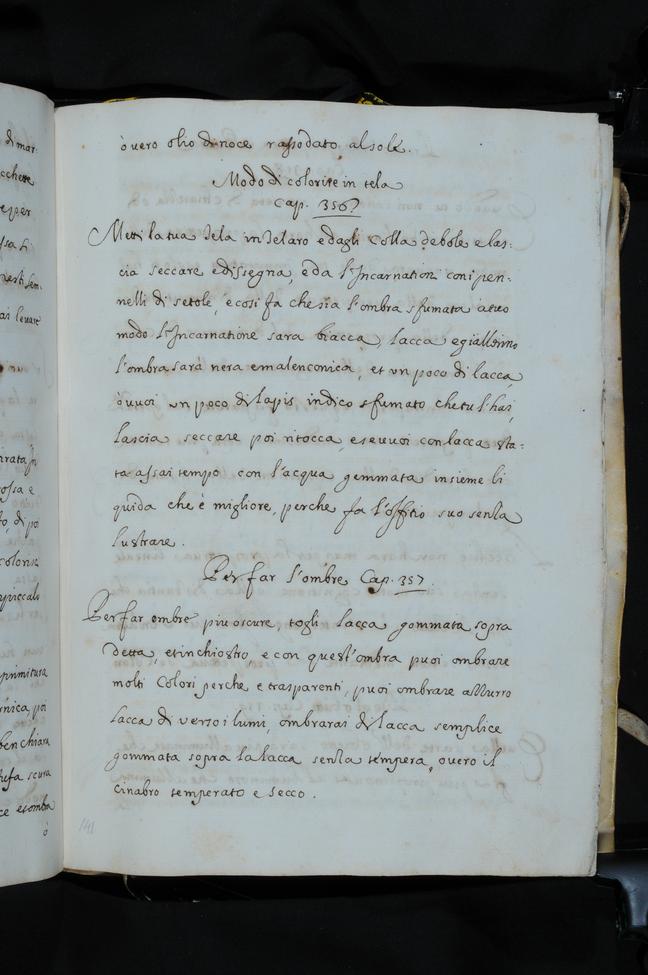 di mar
cchette
e per
ssa li
uesti sem
ai leuare
irata in
ossa e
to, di poi
colorire
piccoli
primitura
rnica, poi
ben chiara
tufa scura
ce et ombra
ò
òuero olio di noce rassodato al sole.
Modo di colorire in tela
Cap. 356.
Metti la tua tela in telaro e dagli colla debole e las:
cia seccare e dissegna, e da l'Incarnation con i pen:
nelli di setole, e cosi fa che sia l'ombra sfumata a tuo
modo l'Incarnatione sara biacca, lacca e giallolino
l'ombra sarà nera e malenconica, et un poco di lacca,
ò uuoi un poco di lapis indico sfumato che tu l'hai,
lascia seccare poi ritocca, e se uuoi con lacca sta:
ta assai tempo con l'acqua gemmata insieme li
quida che è migliore, perche fa l'offitio suo senza
lustrare.
Per far l'ombre Cap. 357.
Per far ombre piu oscure, togli lacca gommata sopra
detta, et inchiostro, e con quest'ombra puoi ombrare
molti colori perche e trasparenti, puoi ombrare azzurro
lacca di uerzo i lumi, ombrarai di lacca semplice
gommata sopra la lacca senza tempera, ouero il
cinabro temperato e secco.
141